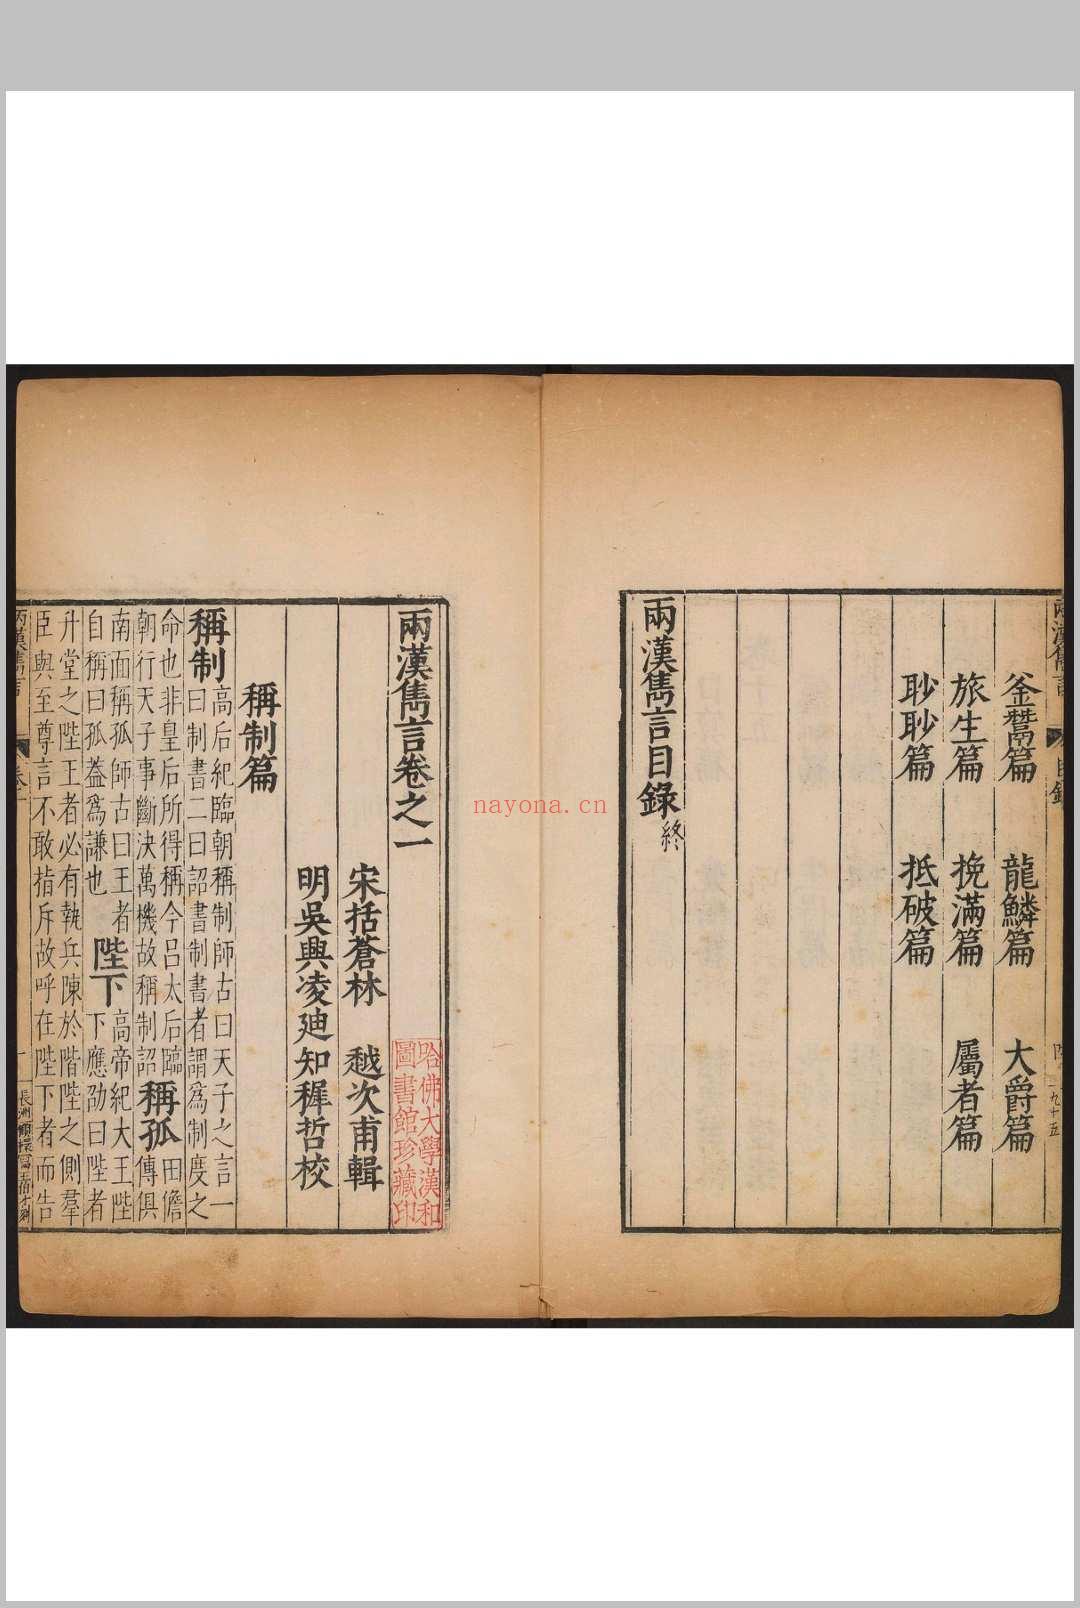 釜鬵篇 龍鱗篇 大爵篇
旅生篇 挽滿篇 屬者篇
眇眇篇 抵破篇
兩漢雋言目錄終
兩漢雋言卷之一
宋括蒼林 越次甫輯
明吳興凌迪知穉哲校
稱制篇
稱制
高后紀臨朝稱制師古曰天子之言一
曰制書二曰詔書制書者謂爲制度之
命也非皇后所得稱今呂太后臨
朝行天子事斷決萬機故稱制詔
稱孤
田儋
傳俱
南面稱孤師古曰王者
自稱曰孤蓋爲謙也
陛下
高帝紀大王陛
下應劭曰陛者
升堂之陛王者必有執兵陳於階陛之側羣
臣與至尊言不敢指斥故呼在陛下者而告
兩漢雋言
卷一
哈佛大學漢和
圖書館珍藏印
nayona.cn